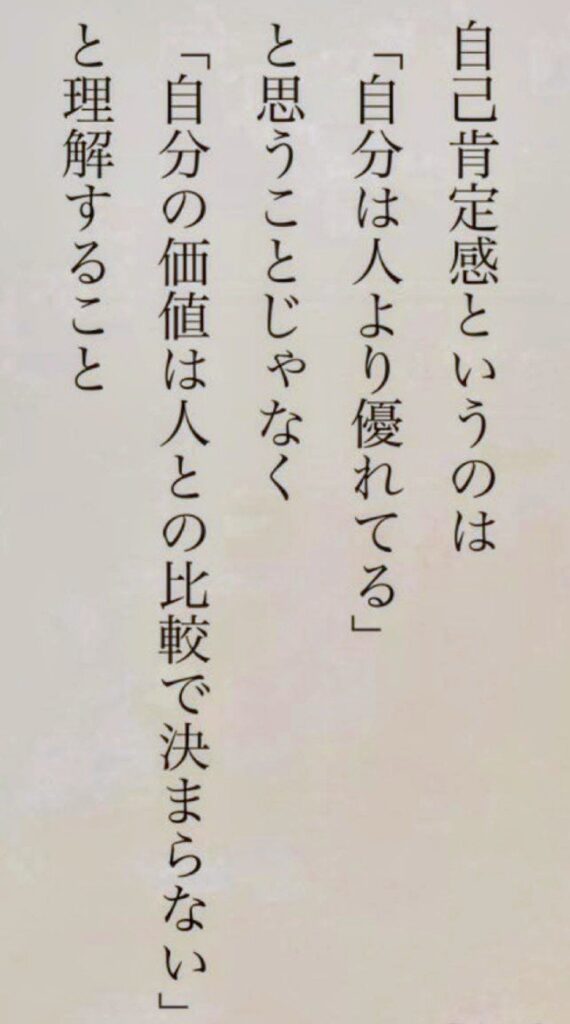 自己肯定感というのは
「自分は人より優れてる」
と思うことじゃなく
「自分の価値は人との比較で決まらない」
と理解すること